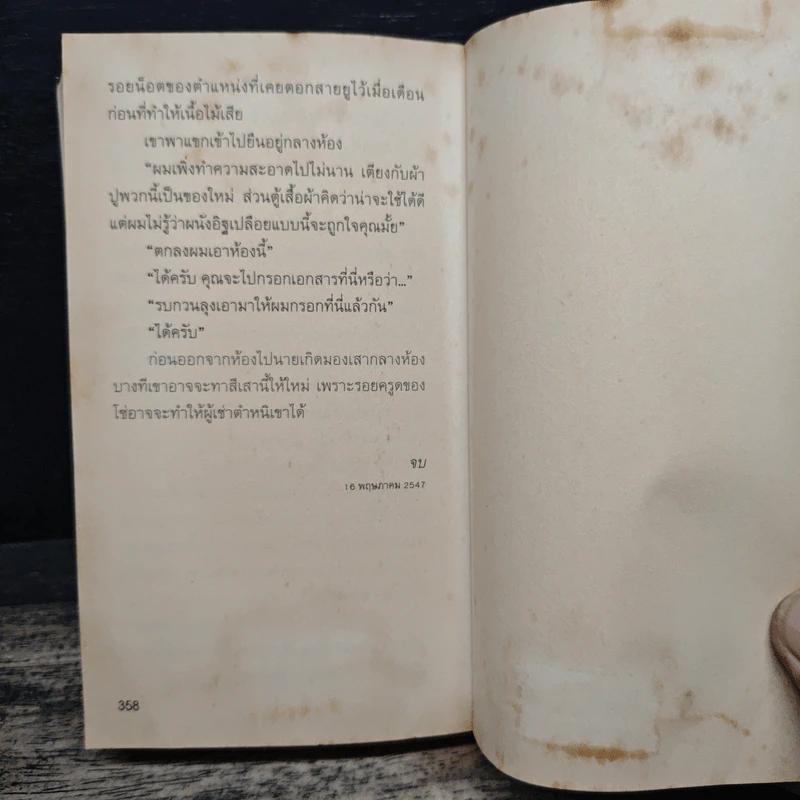 รอยน็อตของตำแหน่งที่เคยตอกสายยูไว้เมื่อเดือน
ก่อนที่ทำให้เนื้อไม้เสีย
เขาพาแขกเข้าไปยืนอยู่กลางห้อง
“ผมเพิ่งทำความสะอาดไปไม่นาน เตียงกับผ้า
ปูพวกนี้เป็นของใหม่ ส่วนตู้เสื้อผ้าคิดว่าน่าจะใช้ได้ดี
แต่ผมไม่รู้ว่าผนังอิฐเปลือยแบบนี้จะถูกใจคุณมั้ย”
“ตกลงผมเอาห้องนี้”
“ได้ครับ คุณจะไปกรอกเอกสารที่นี่หรือว่า...”
“รบกวนลุงเอามาให้ผมกรอกที่นี่แล้วกัน”
“ได้ครับ”
ก่อนออกจากห้องไปนายเกิดมองเสากลางห้อง
บางทีเขาอาจจะทาสีเสานี้ให้ใหม่ เพราะรอยครูดของ
โซ่อาจจะทำให้ผู้เช่าตำหนิเขาได้
จบ
16 พฤษภาคม 2547
358